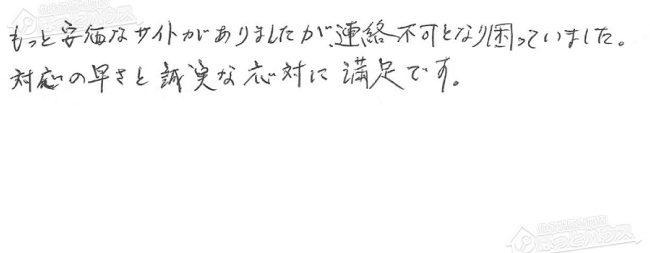 もっと安価なサイトがありましたが、連絡不可となり困っていました。
対応の早さと誠実な応対に満足です。